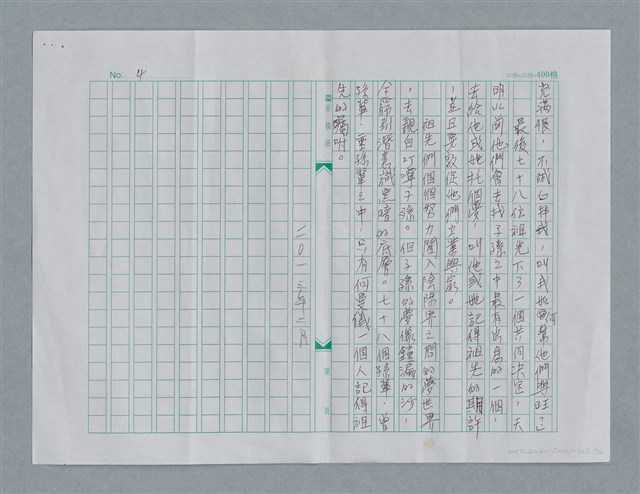 No. 4
400格
充滿恨，不試口拜我，叫我如何幫他們興旺？
最後七十八位祖先下了一個共同決定，天
明以前他們會去找子孫之中最有出息的一個，
去給他或她托個夢，叫他或她記得祖先的期許
，並且要敦促他們立業興家。
祖先們個個努力闖入陰陽界之間的夢世界
，去親自叮嚀子孫。但子孫的夢像鐘漏的沙，
全篩到潛意識黑暗的底層。七十八個孫輩、曾
孫輩、重孫輩之中，只有何曼儀一個人記得祖
先的囑咐。
二〇一三年二月